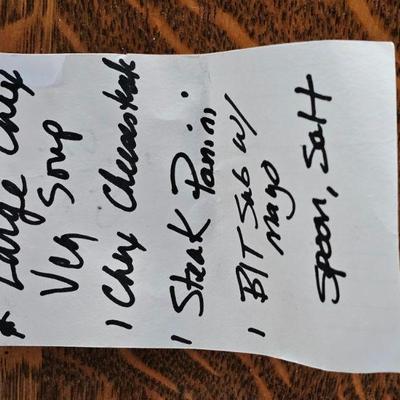 Large Chx
Veg Soup
1 Chx Cheesesteak
1 Steak Panini.
1 B/T Sub w/
mayo
Spoon, Salt